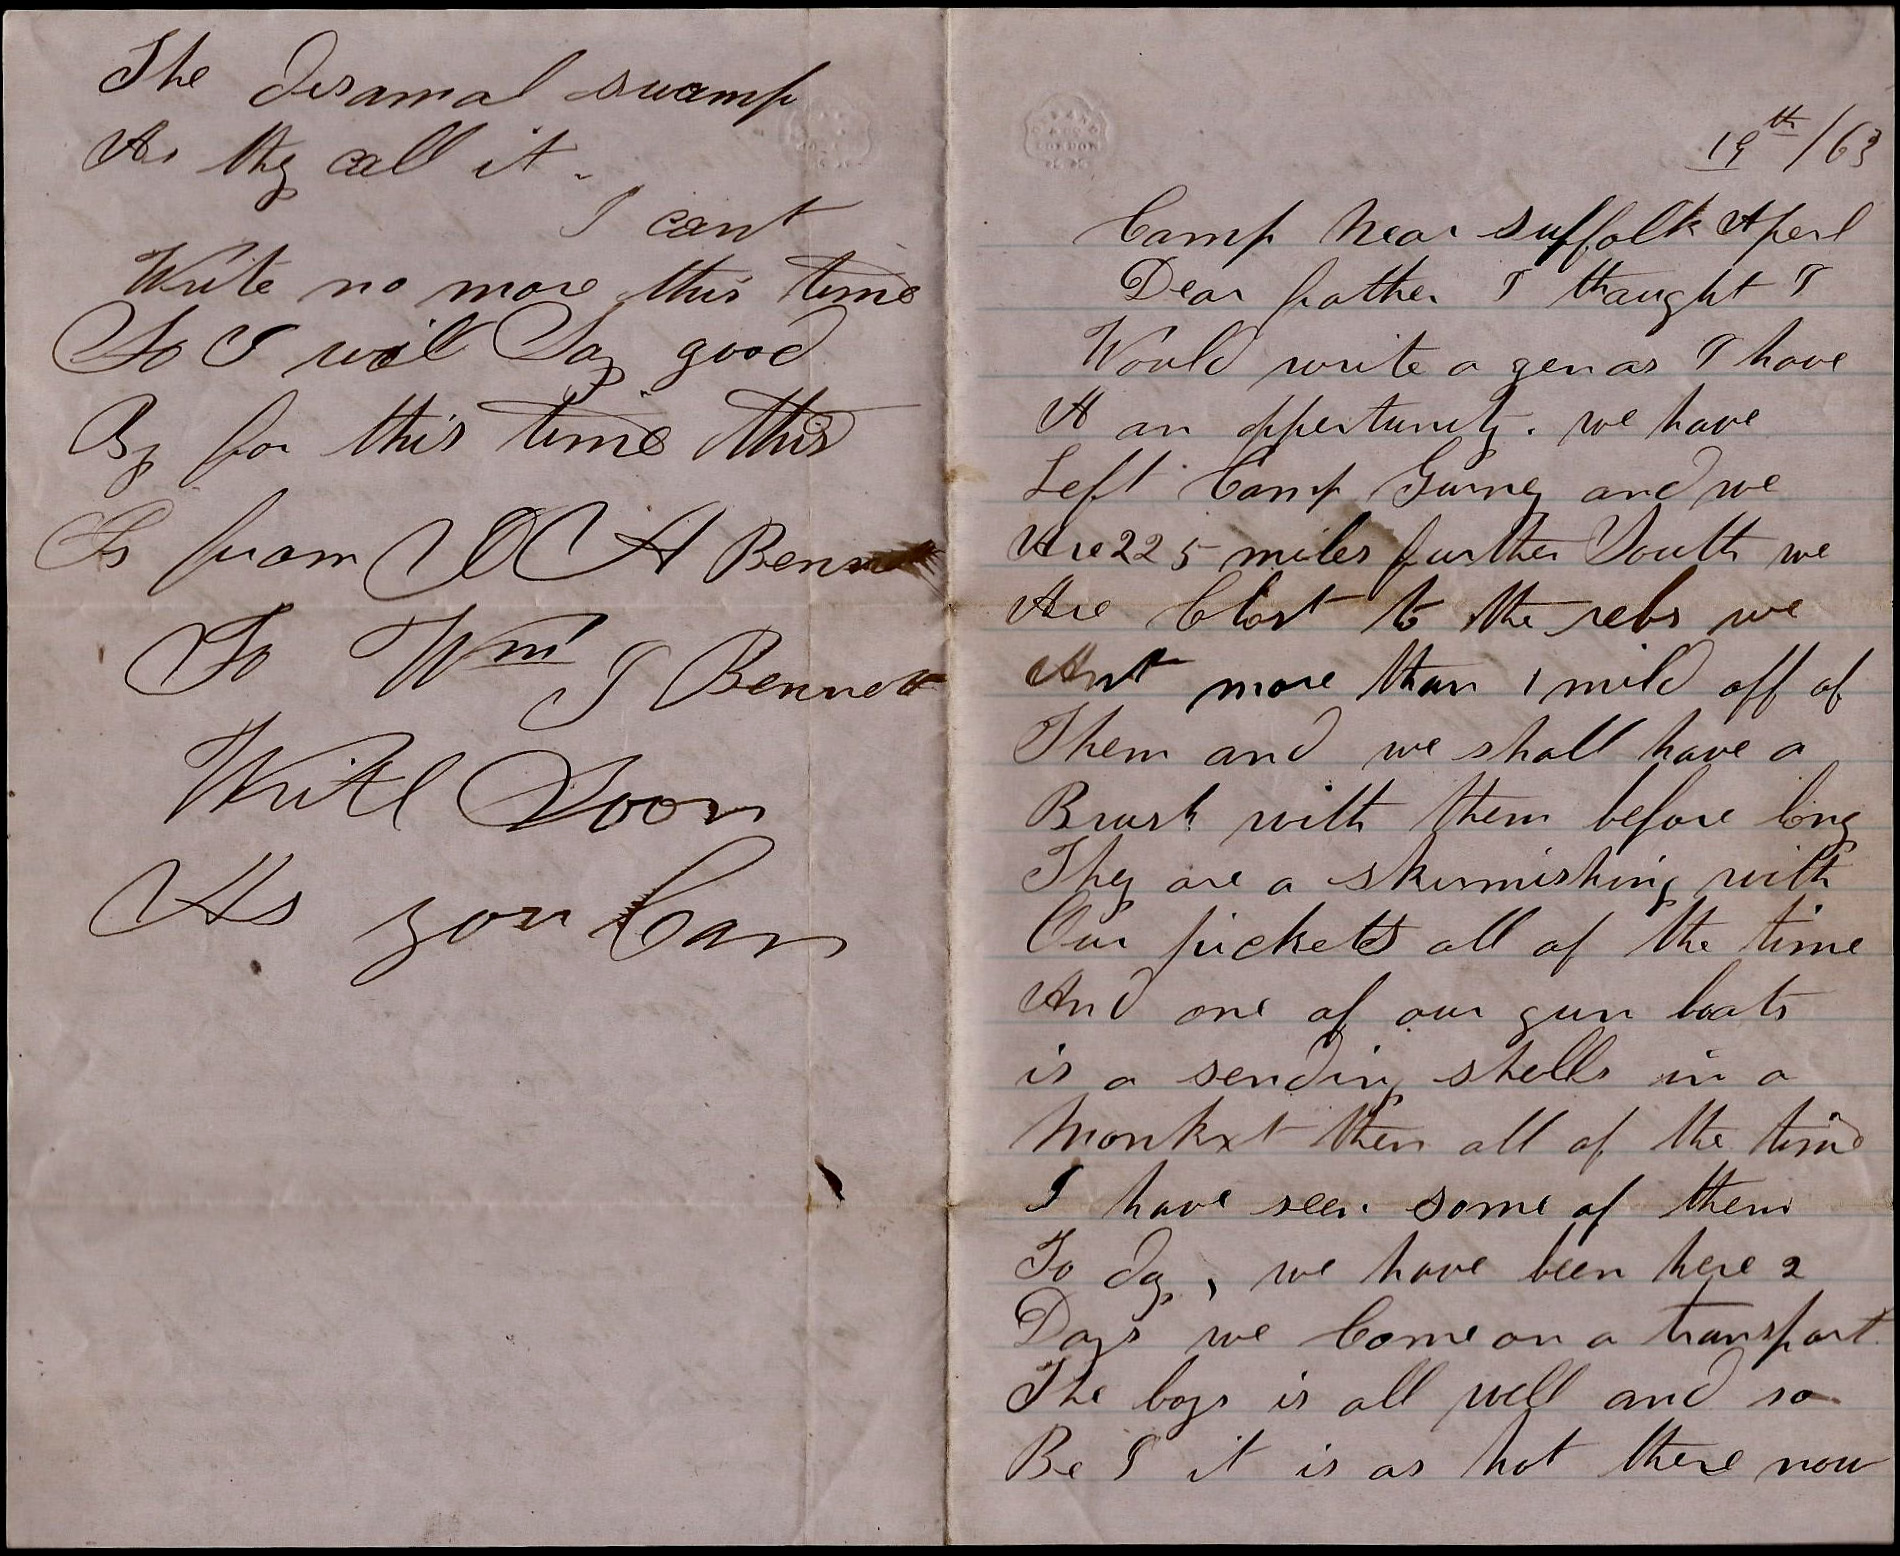 19th/63
Camp Near Suffolk Aperl
Dear father I thaught I
Would write a gen as I have
A an oppertunity. we have
Left Camp Gurney and we
Are 225 miles further South we
Are Clost to the rebs we
Ant more than 1 mild off of
Them and we shall have a
Brush with them before long
They are a skirmishing with
Our picketts all of the time
And one of our gun boats
is a sending shells in a
Monkxt then all of the time
I have seen some of them
To day, we have been here 2
Days we Come on a transport.
The boys is all well and so
Be I it is as hot there now
The disamal swamp
As they call it.
I cant
Write no more this time
So I will Say good
By for this time this
Is from A Bennett
To Wm J Bennett
Write Soon
As you Can